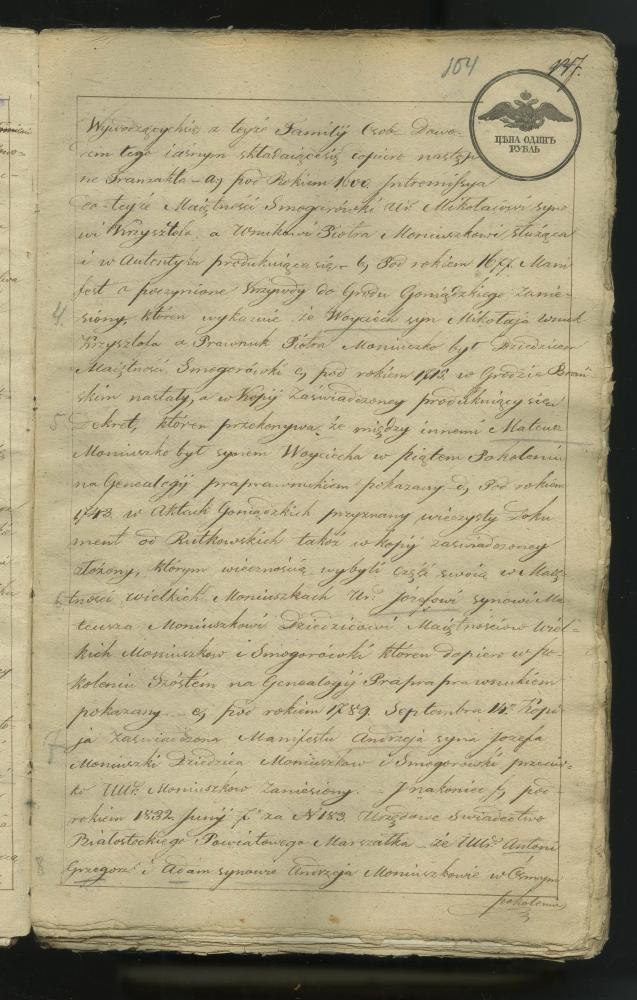 104 147.
ЦѢНА ОДИНЪ
РУБЛЬ
Wywodzących się z teyże Familij Osob Dowo-
rem tego iasnym składaiące się dopiero następu
ne Tranzakta – a, pod Rokiem 1600. Intromissya
do teyże Maiętności Smogorówki Ur. Mikołaiowi syno
wi Krzysztofa a Wnukowi Piotra Moniuszkowi służąca
i w Autentyku produkuiąca się – b, Pod rokiem 1677. Mani
fest o poczynione Krzywdy do Grodu Goniądzkiego zanie-
4. siony, któren wykazuie że Woyciech syn Mikołaja wnuk
Krzysztofa a Prawnuk Piotra Moniuszko był Dziedzicem
Maiętności Smogorówki c, pod rokiem 1713. w Grodzie Brań
skim nastały, a w Kopij zaświadczoney produkuiący się
5 Dekret, któren przekonywa że między innemi Mateusz
Moniuszko był synem Woyciecha w piątem Pokoleniu
na Genealogij praprawnukiem pokazany d, Pod rokiem
1743. w Aktach Goniądzkich przyznany wieczysty Doku
ment od Rutkowskich takoż w kopij zaświadczoney
złożony, którym wiecznością wybyli część swoią w Maię-
6. tności wielkich Moniuszkach Ur. Jozefowi synowi Ma-
teusza Moniuszkowi Dziedzicowi Maiętnościow Wiel-
kich Moniuszkow i Smogorówki któren dopiero w po-
koleniu Szóstém na Genealogij Prapraprawnukiem
pokazany – e, pod rokiem 1789. Septembra 14. Kopi-
7 ja zaświadczona Manifestu Andrzeja syna Jozefa
Moniuszki Dziedzica Moniuszkow i Smogorówki przeciw-
ko Moniuszkow zaniesiony. – Jnakoniec f, pod
rokiem 1832. Junij 7. za N 183. Urzędowe Swiadectwo
Białostockiego Powiatowego Marszałka – że Antoni
8 Grzegorz i Adam synowie Andrzeja Moniuszkowie w Osmym
pokoleniu